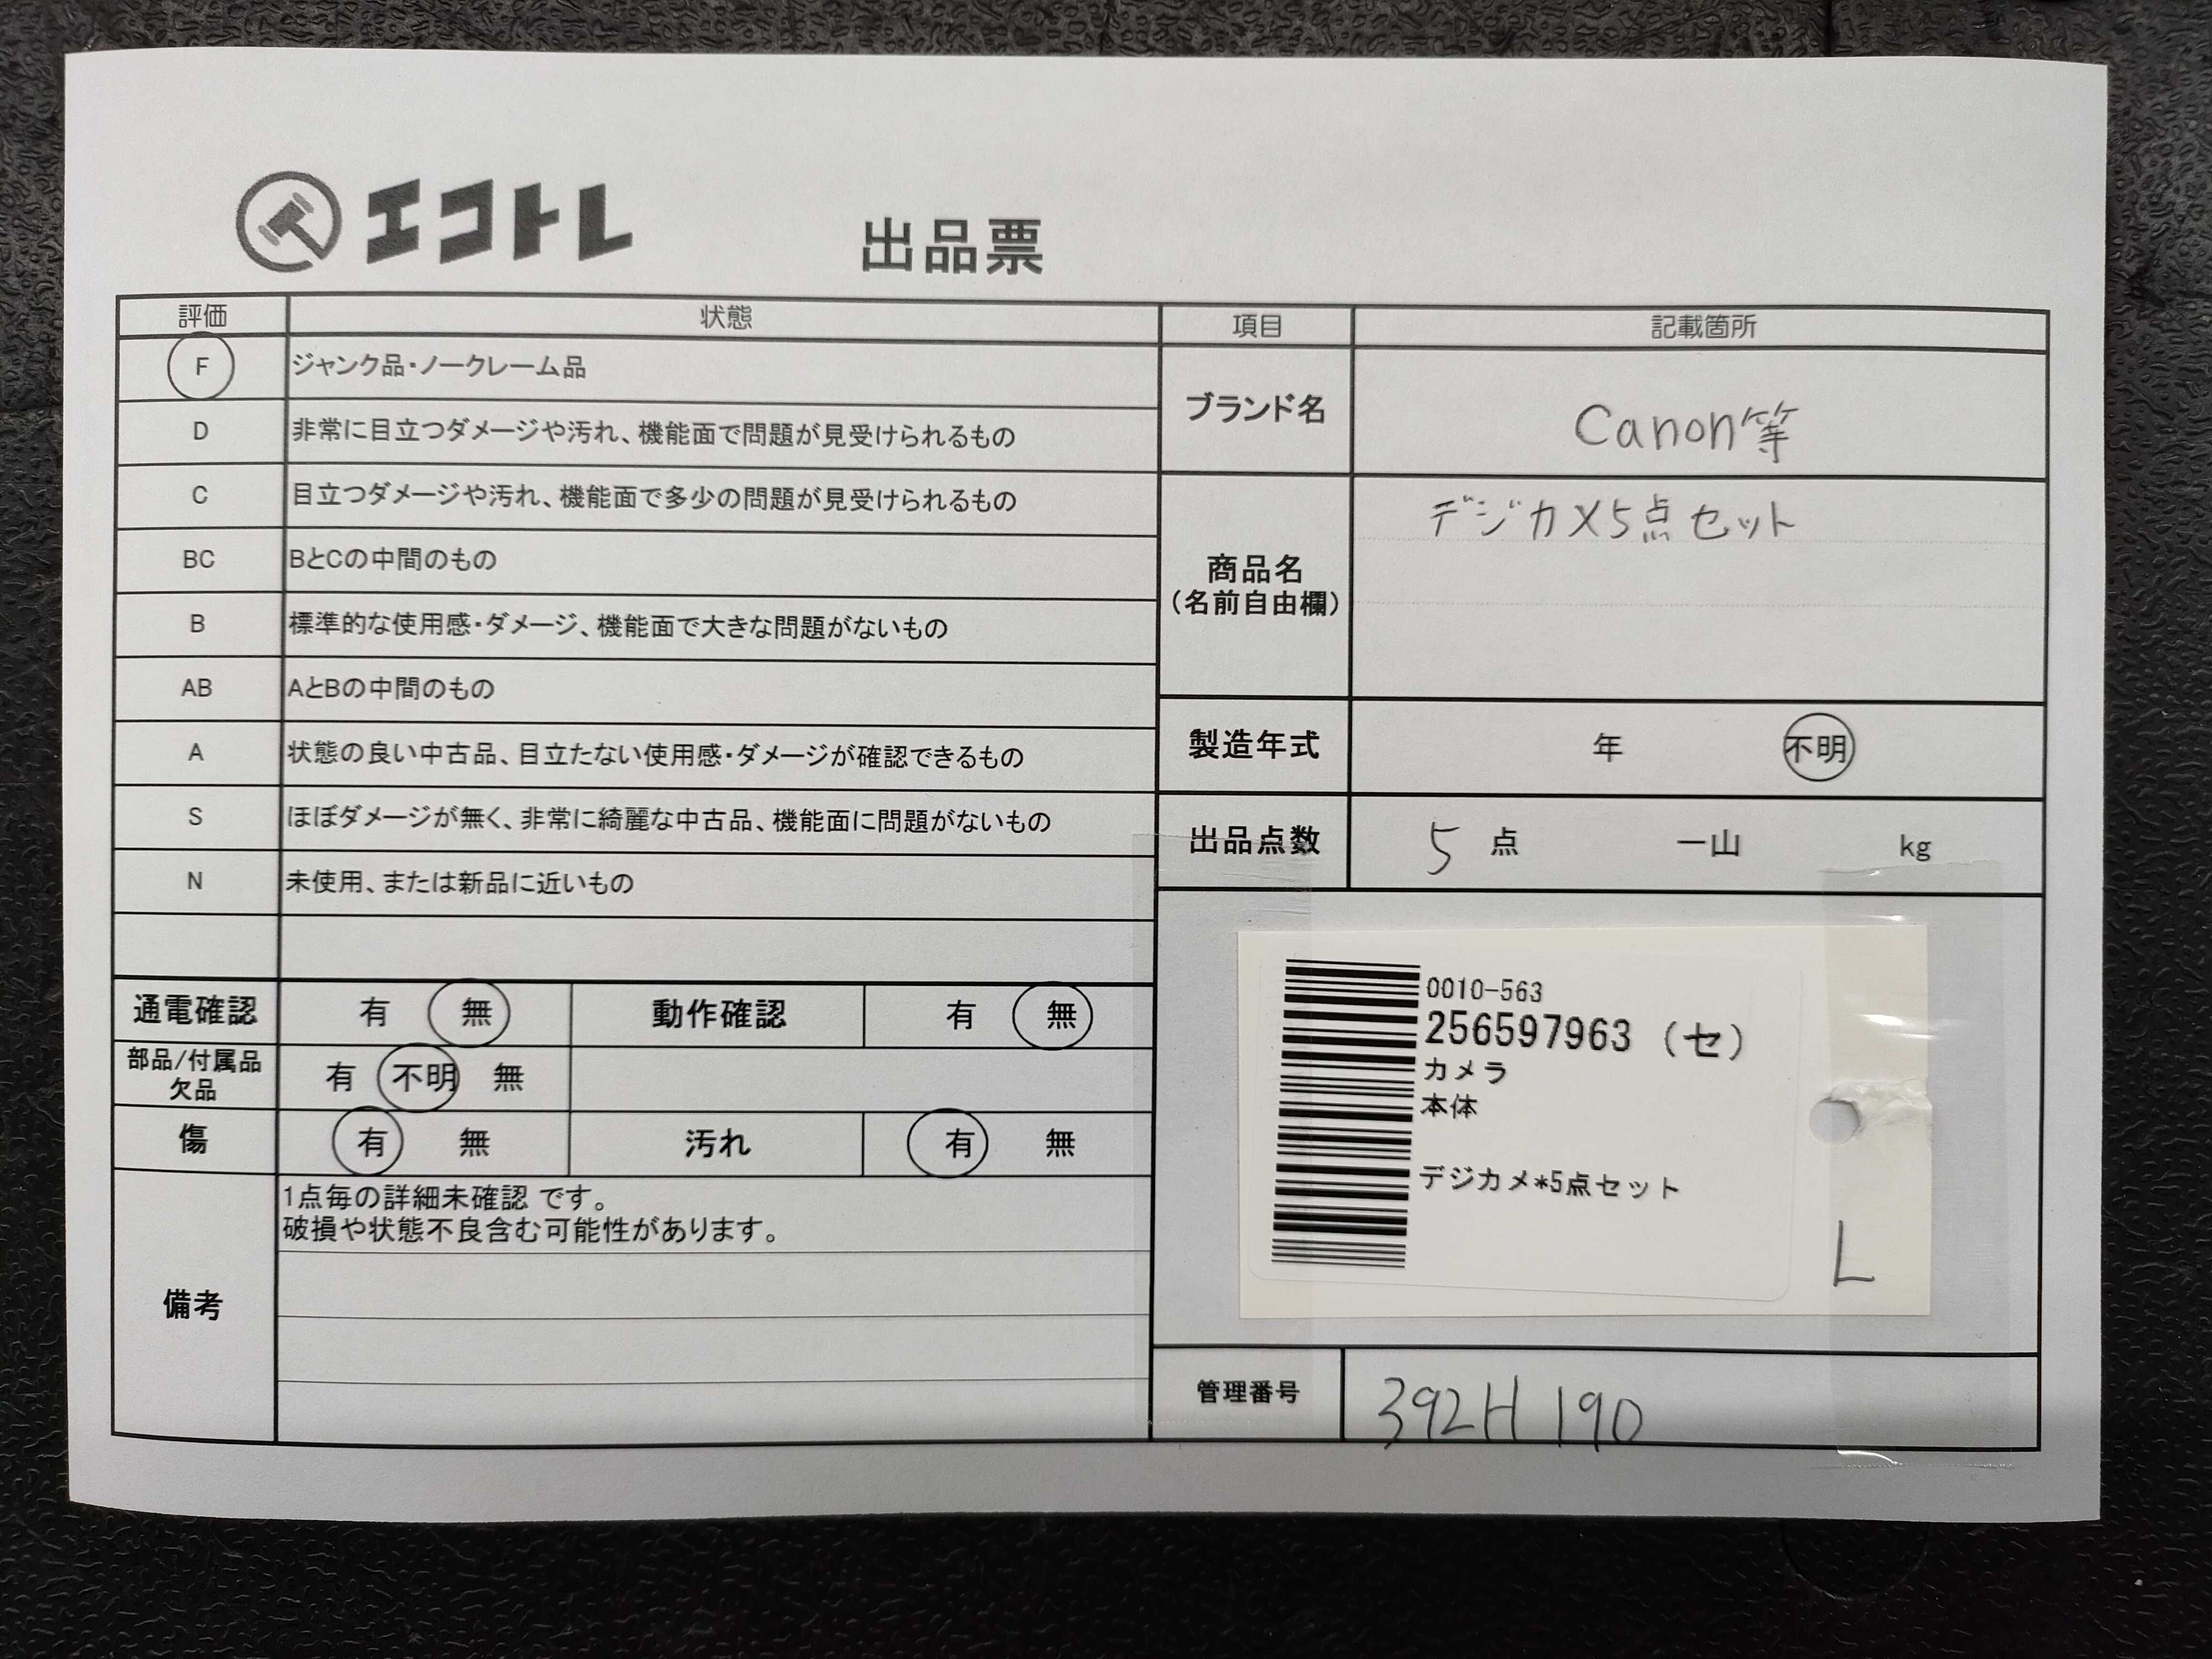 エコトレ
出品票
評価 状態
F ジャンク品・ノークレーム品
D 非常に目立つダメージや汚れ、機能面で問題が見受けられるもの
C 目立つダメージや汚れ、機能面で多少の問題が見受けられるもの
BC BとCの中間のもの
B 標準的な使用感・ダメージ、機能面で大きな問題がないもの
AB AとBの中間のもの
A 状態の良い中古品、目立たない使用感・ダメージが確認できるもの
S ほぼダメージが無く、非常に綺麗な中古品、機能面に問題がないもの
N 未使用、または新品に近いもの
通電確認 有 無 動作確認 有 無
部品/付属品
欠品 有 不明 無
傷 有 無 汚れ 有 無
備考
1点毎の詳細未確認 です。
破損や状態不良含む可能性があります。
項目 記載箇所
ブランド名 Canon等
商品名
(名前自由欄)
デジカメ5点セット
製造年式 年 不明
出品点数 5 点 一山 kg
0010-563
256597963 (セ)
カメラ
本体
デジカメ*5点セット
L
管理番号 392H 190